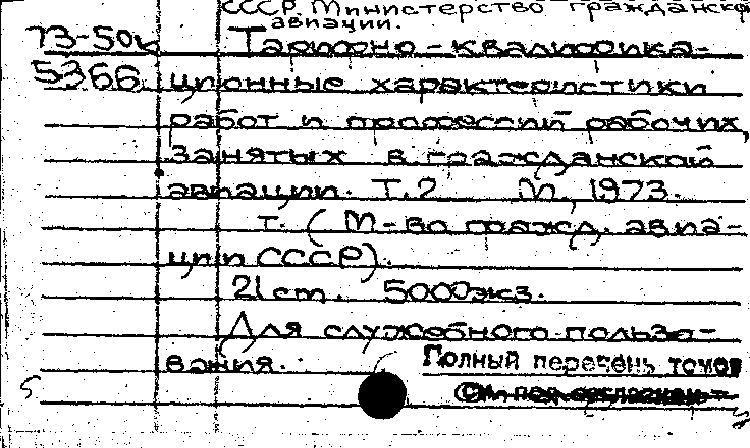 СССР. Министерство гражданской
авиации.
73-50к Тарифно-квалифика-
5366 ционные характеристики
работ и профессий рабочих,
занятых в гражданской
авиации. Т.2 М., 1973.
т. (М-во гражд. авиа-
ции СССР).
21 см. 5000 экз.
Для служебного пользо-
вания. Полный перечень томов
см.
5